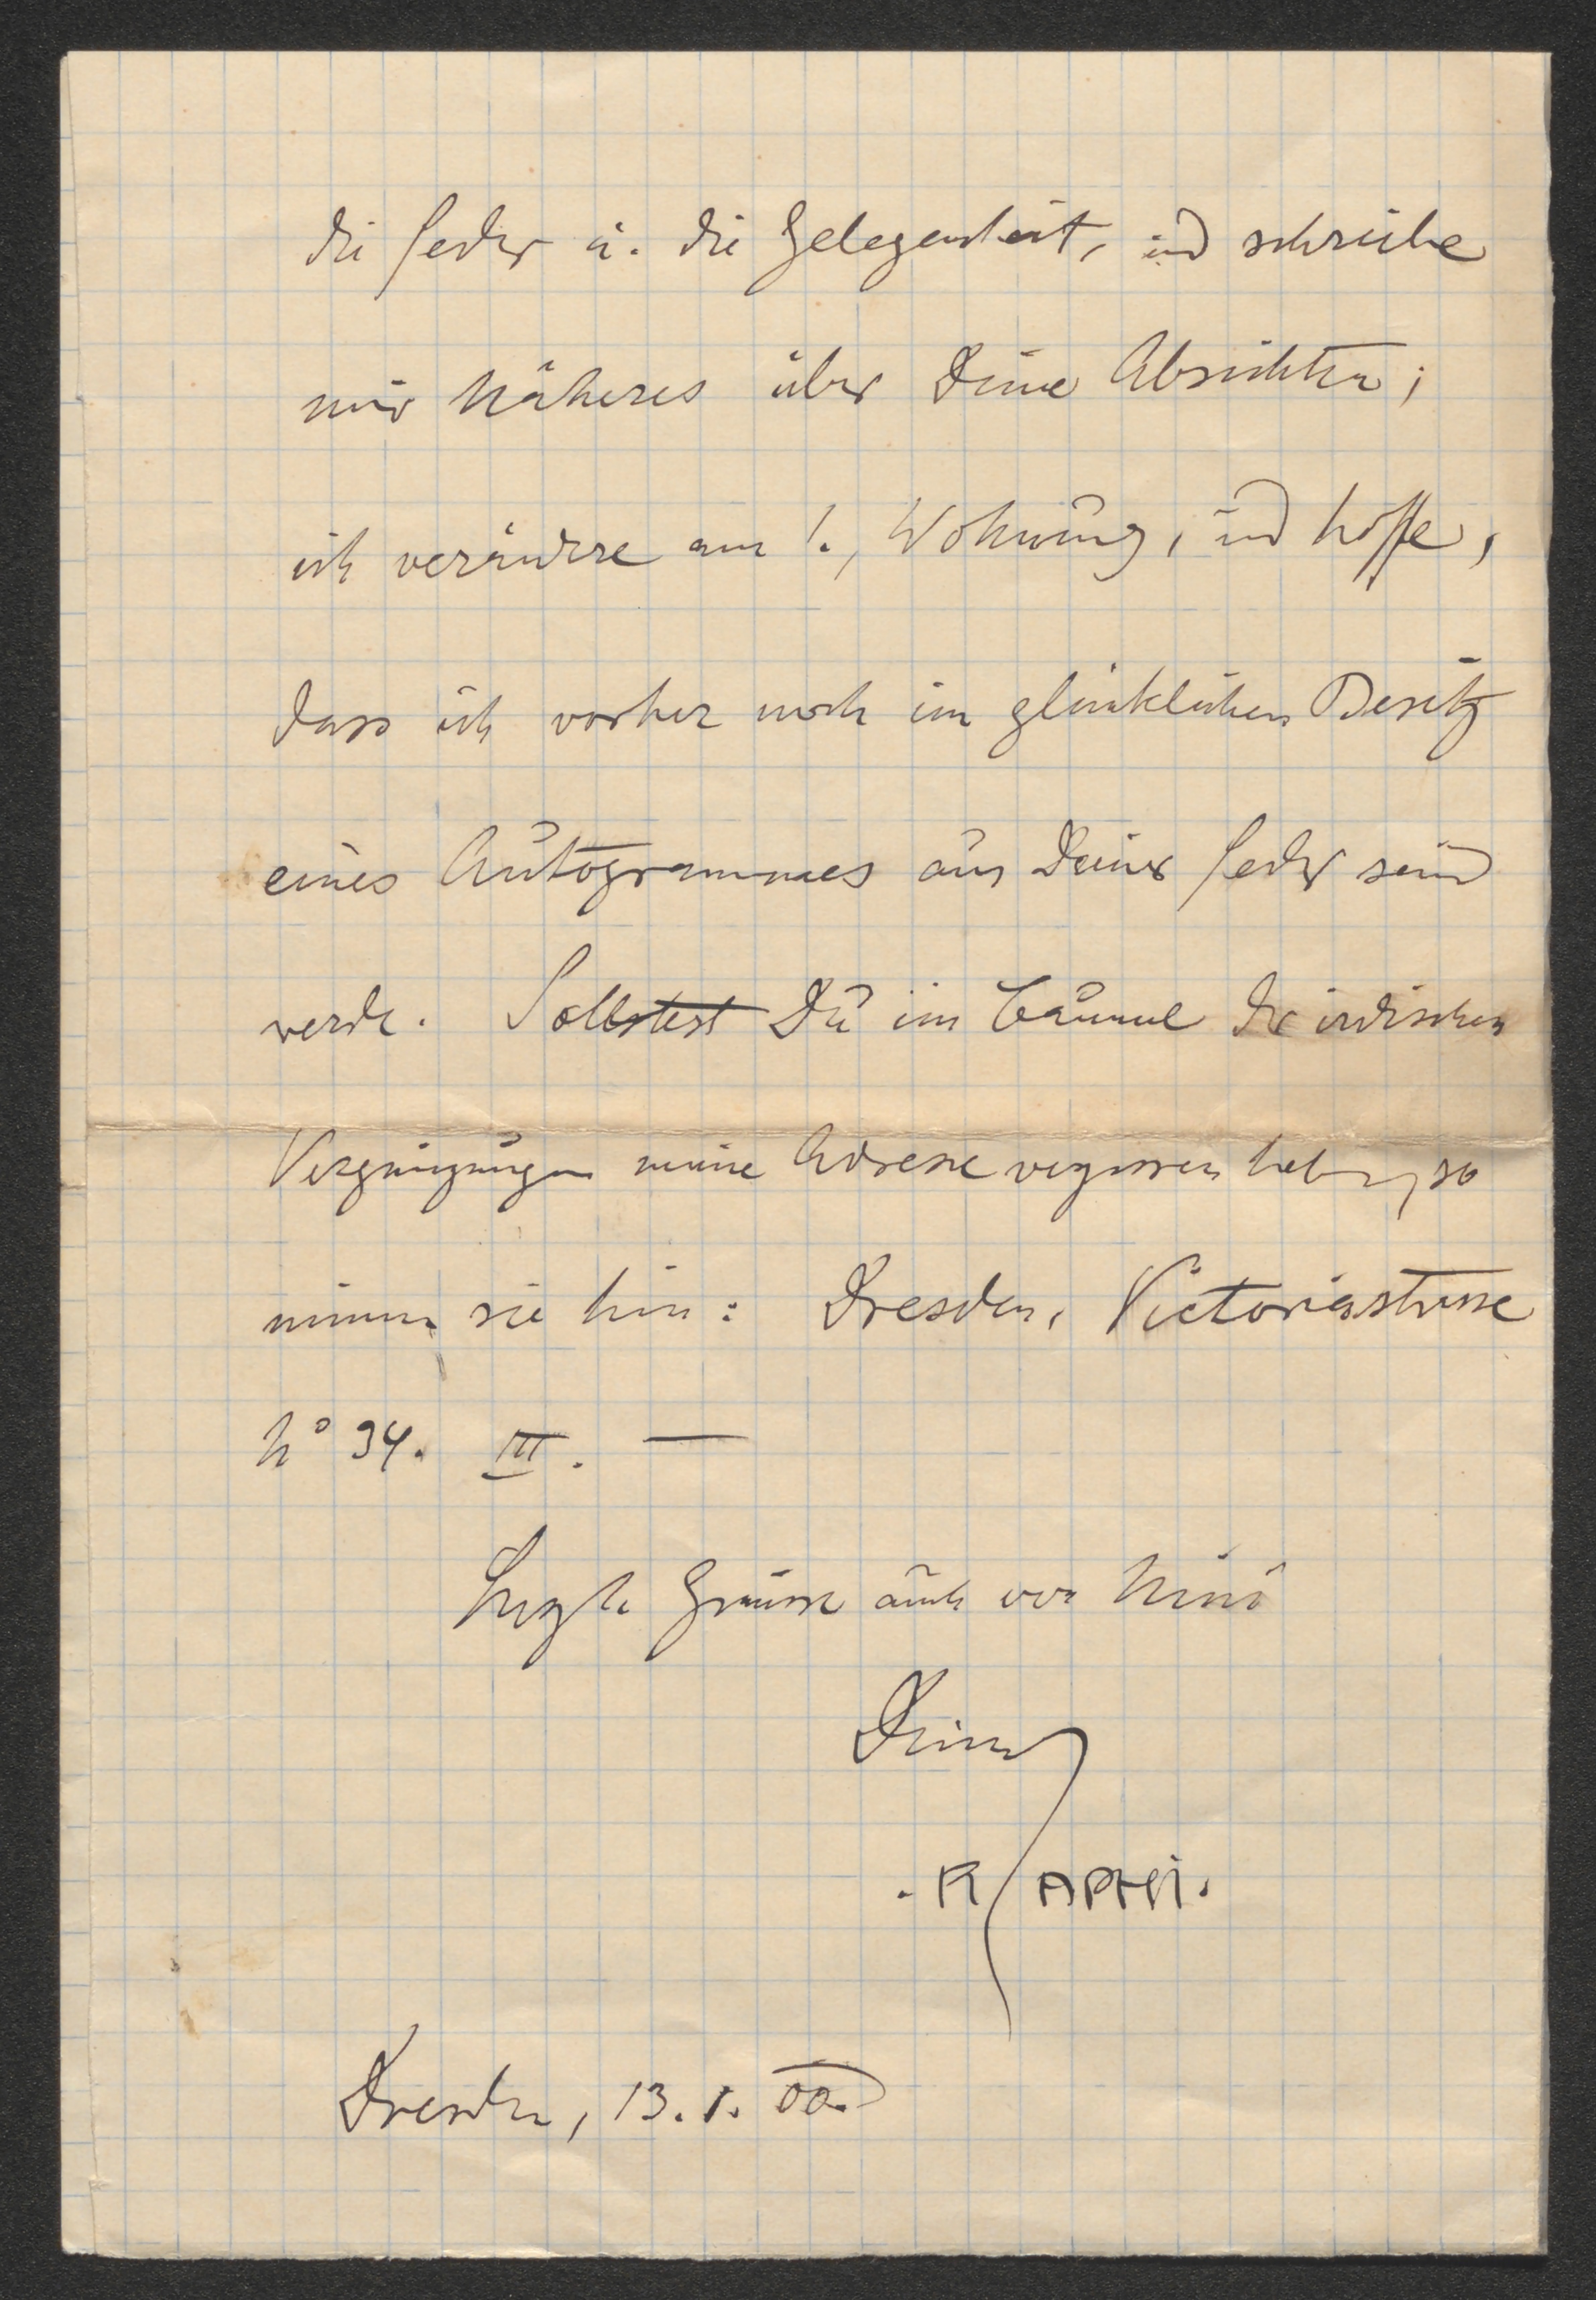 die Feder u. die Gelegenheit, und schreibe
mir Näheres über Deine Absichten;
ich verändere am 1., Wohnung, und hoffe,
dass ich vorher noch im glücklichen Besitz
eines Autogrammes aus Deiner Feder sein
werde. Solltest Du im Taumel der irdischen
Vergnügungen meine Adresse vergessen haben, so
nimm sie hin: Dresden, Victoriastrasse
No 34. III. —
Herzle Grüsse auch von Mimi
Deiner
. RAPHI.
Dresden, 13. 1. 00.